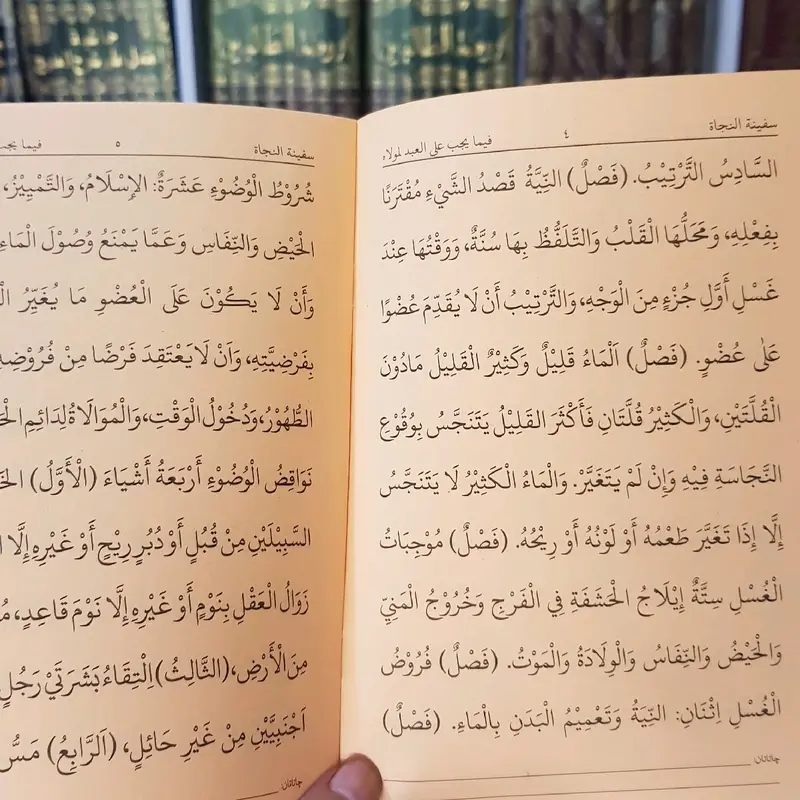 سفينة النجاة ٤ فيما يجب على العبد لمولاه
السَّادِسُ التَّرْتِيْبُ. (فَصْلٌ) النِّيَّةُ قَصْدُ الشَّيْءِ مُقْتَرَنًا
بِفِعْلِهِ، وَمَحَلُّهَا الْقَلْبُ وَالتَّلَفُّظُ بِهَا سُنَّةٌ، وَوَقْتُهَا عِنْدَ
غَسْلِ أَوَّلِ جُزْءٍ مِنَ الْوَجْهِ، وَالتَّرْتِيْبُ أَنْ لَا يُقَدِّمَ عُضْوًا
عَلٰى عُضْوٍ. (فَصْلٌ) اَلْمَاءُ قَلِيْلٌ وَكَثِيْرٌ الْقَلِيْلُ مَادُوْنَ
الْقُلَّتَيْنِ، وَالْكَثِيْرُ قُلَّتَانِ فَأَكْثَرَ القَلِيْلُ يَتَنَجَّسُ بِوُقُوْعِ
النَّجَاسَةِ فِيْهِ وَإِنْ لَمْ يَتَغَيَّرْ. وَالْمَاءُ الْكَثِيْرُ لَا يَتَنَجَّسُ
إِلَّا إِذَا تَغَيَّرَ طَعْمُهُ أَوْ لَوْنُهُ أَوْ رِيْحُهُ. (فَصْلٌ) مُوْجِبَاتُ
الْغُسْلِ سِتَّةٌ إِيْلَاجُ الْحَشَفَةِ فِي الْفَرْجِ وَخُرُوْجُ الْمَنِيِّ
وَالْحَيْضُ وَالنِّفَاسُ وَالْوِلَادَةُ وَالْمَوْتُ. (فَصْلٌ) فُرُوْضُ
الْغُسْلِ اِثْنَانِ: النِّيَّةُ وَتَعْمِيْمُ الْبَدَنِ بِالْمَاءِ. (فَصْلٌ)
سفينة النجاة ٥ فيما يجب
شُرُوْطُ الْوُضُوْءِ عَشَرَةٌ: الإِسْلَامُ، وَالتَّمْيِيْزُ،
الْحَيْضِ وَالنِّفَاسِ وَعَمَّا يَمْنَعُ وُصُوْلَ الْمَاءِ
وَأَنْ لَا يَكُوْنَ عَلَى الْعُضْوِ مَا يُغَيِّرُ
بِفَرْضِيَّتِهِ، وَاَنْ لَا يَعْتَقِدَ فَرْضًا مِنْ فُرُوْضِهِ
الطُّهُوْرُ، وَدُخُوْلُ الْوَقْتِ، وَالْمُوَالَاةُ لِدَائِمِ
نَوَاقِضُ الْوُضُوْءِ أَرْبَعَةُ أَشْيَاءَ (الْأَوَّلُ)
السَّبِيْلَيْنِ مِنْ قُبُلٍ أَوْ دُبُرٍ رِيْحٍ أَوْ غَيْرِهِ إِلَّا
زَوَالُ الْعَقْلِ بِنَوْمٍ أَوْ غَيْرِهِ إِلَّا نَوْمَ قَاعِدٍ،
مِنَ الْأَرْضِ، (الثَّالِثُ) اِلْتِقَاءُ بَشَرَتَيْ رَجُلٍ
اَجْنَبِيَّيْنِ مِنْ غَيْرِ حَائِلٍ، (اَلرَّابِعُ) مَسُّ